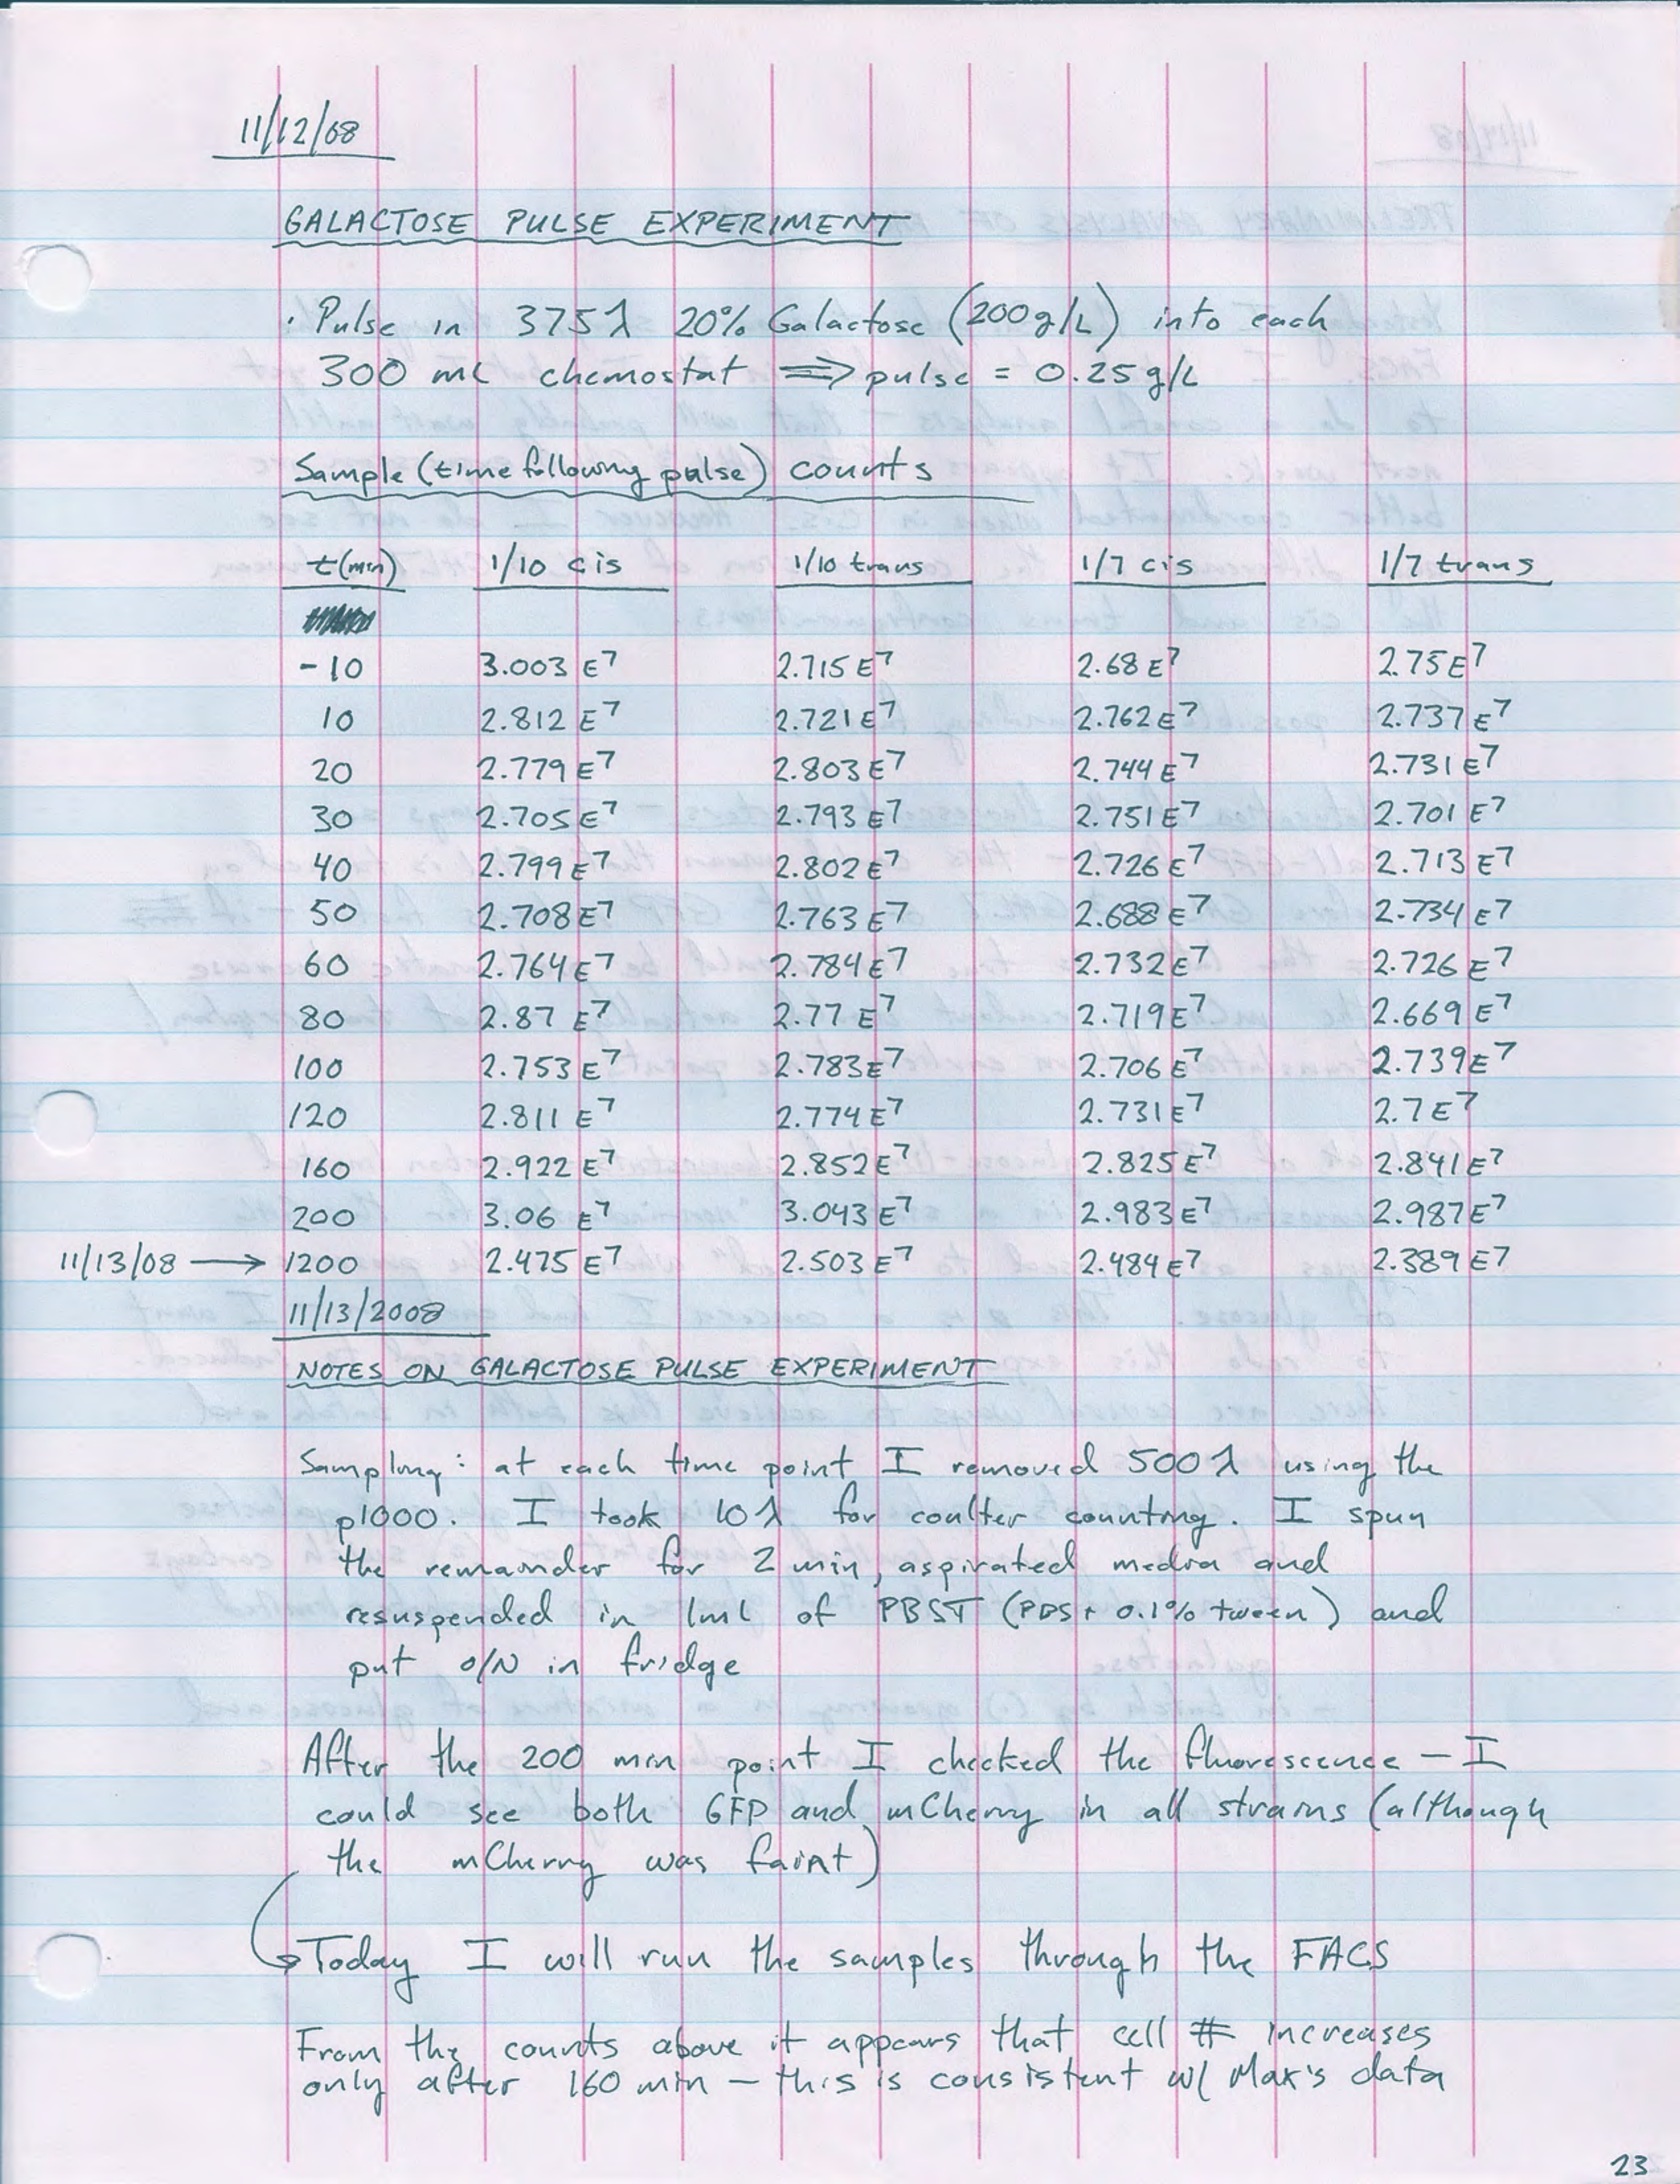 11/12/08
GALACTOSE PULSE EXPERIMENT
· Pulse in 375λ 20% Galactose (200g/L) into each
300 mL chemostat ⟹ pulse = 0.25g/L
Sample (time following pulse) counts
t(min) 1/10 cis 1/10 trans 1/7 cis 1/7 trans
-10 3.003 E7 2.715 E7 2.68 E7 2.75 E7
10 2.812 E7 2.721 E7 2.762 E7 2.737 E7
20 2.779 E7 2.803 E7 2.744 E7 2.731 E7
30 2.705 E7 2.793 E7 2.751 E7 2.701 E7
40 2.799 E7 2.802 E7 2.726 E7 2.713 E7
50 2.708 E7 2.763 E7 2.688 E7 2.734 E7
60 2.764 E7 2.784 E7 2.732 E7 2.726 E7
80 2.87 E7 2.77 E7 2.719 E7 2.669 E7
100 2.753 E7 2.783 E7 2.706 E7 2.739 E7
120 2.811 E7 2.774 E7 2.731 E7 2.7 E7
160 2.922 E7 2.852 E7 2.825 E7 2.841 E7
200 3.06 E7 3.043 E7 2.983 E7 2.987 E7
11/13/08 → 1200 2.475 E7 2.503 E7 2.484 E7 2.389 E7
11/13/2008
NOTES ON GALACTOSE PULSE EXPERIMENT
Sampling: at each time point I removed 500 λ using the
p1000. I took 10 λ for coulter counting. I spun
the remainder for 2 min, aspirated media and
resuspended in 1mL of PBST (PBS + 0.1% tween) and
put O/N in fridge
After the 200 min point I checked the fluorescence – I
could see both GFP and mCherry in all strains (although
the mCherry was faint)
→ Today I will run the samples through the FACS
From the counts above it appears that cell # increases
only after 160 min – this is consistent w/ Max's data
23